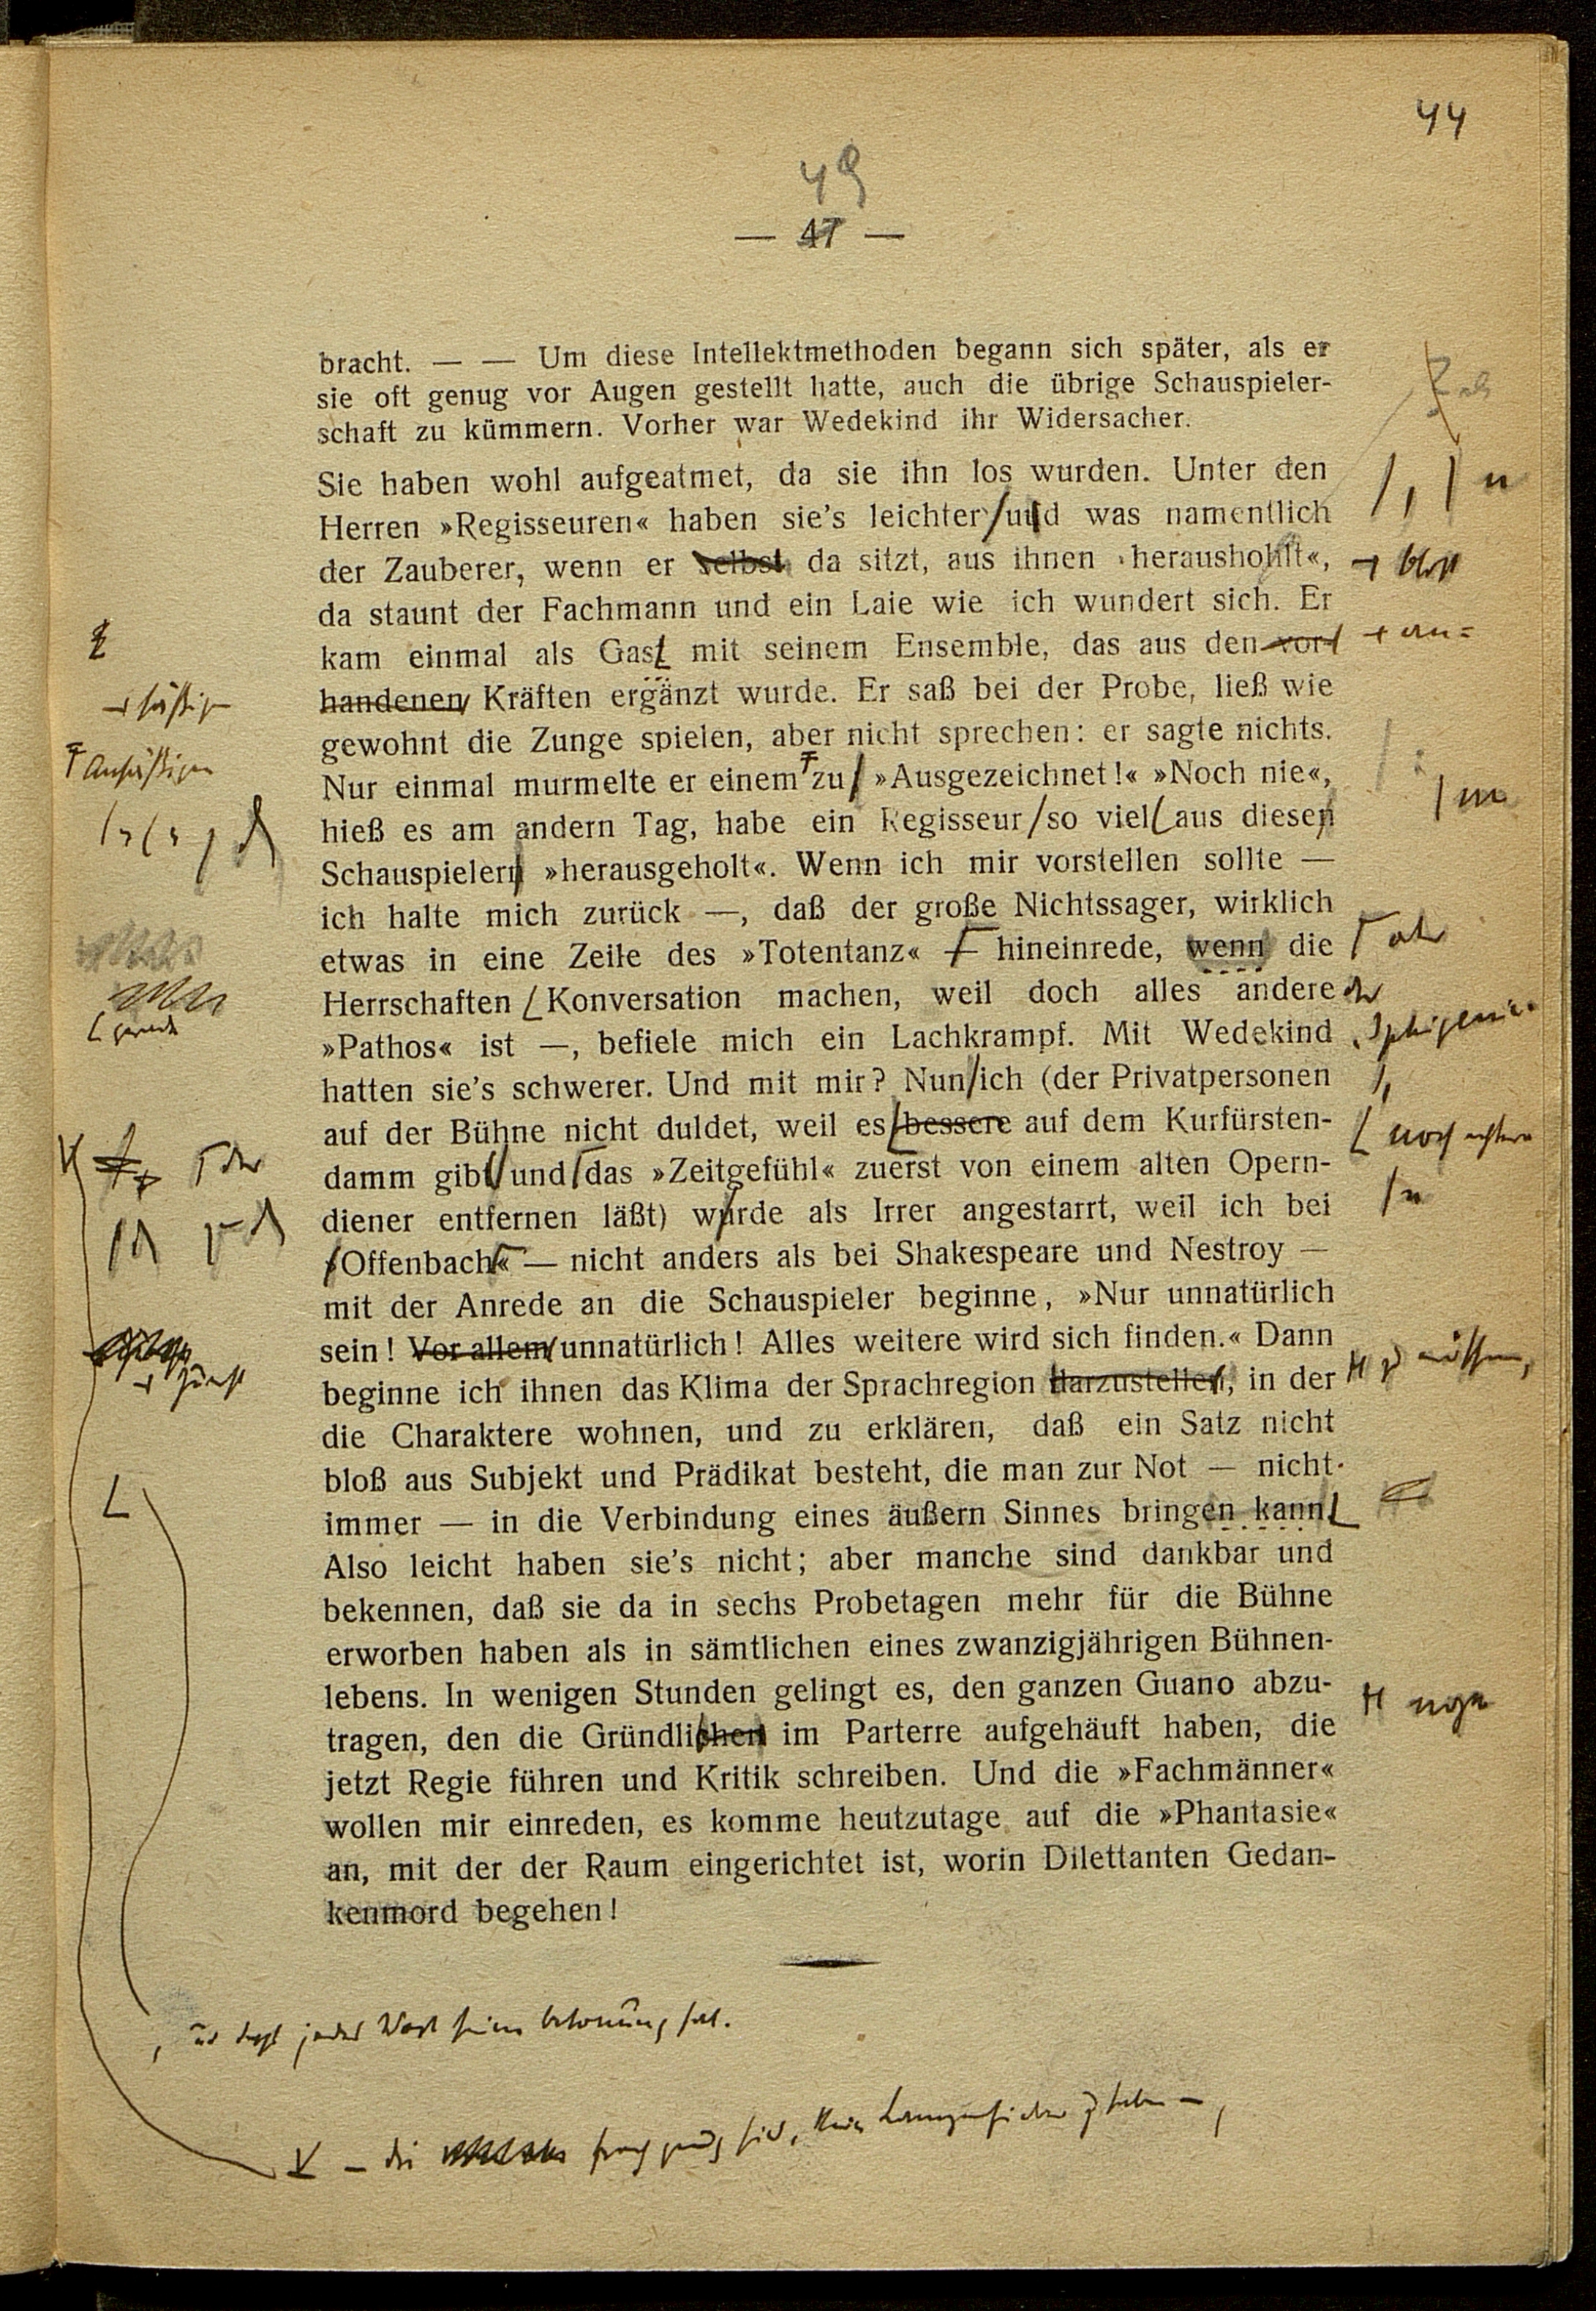 44
49
— 47 —
bracht. — — Um diese Intellektmethoden begann sich später, als er
sie oft genug vor Augen gestellt hatte, auch die übrige Schauspieler-
schaft zu kümmern. Vorher war Wedekind ihr Widersacher.
Sie haben wohl aufgeatmet, da sie ihn los wurden. Unter den
Herren »Regisseuren« haben sie's leichter und was namentlich
der Zauberer, wenn er selbst da sitzt, aus ihnen »heraushohlt«,
bloß
da staunt der Fachmann und ein Laie wie ich wundert sich. Er
kam einmal als Gast mit seinem Ensemble, das aus den vor-
an=
handenen Kräften ergänzt wurde. Er saß bei der Probe, ließ wie
säßigen
gewohnt die Zunge spielen, aber nicht sprechen: er sagte nichts.
Ansäßigen
Nur einmal murmelte er einem zu »Ausgezeichnet!« »Noch nie«,
m
hieß es am andern Tag, habe ein Regisseur so viel aus diesen
Schauspielern »herausgeholt«. Wenn ich mir vorstellen sollte —
ich halte mich zurück —, daß der große Nichtssager, wirklich
etwas in eine Zeile des »Totentanz« hineinrede, wenn die
oder
Herrschaften Konversation machen, weil doch alles andere
der
gerade
»Iphigenie«
»Pathos« ist —, befiele mich ein Lachkrampf. Mit Wedekind
hatten sie's schwerer. Und mit mir? Nun ich (der Privatpersonen
auf der Bühne nicht duldet, weil es bessere auf dem Kurfürsten-
noch echtere
der
damm gibt und das »Zeitgefühl« zuerst von einem alten Opern-
diener entfernen läßt) wurde als Irrer angestarrt, weil ich bei
»Offenbach« — nicht anders als bei Shakespeare und Nestroy —
mit der Anrede an die Schauspieler beginne, »Nur unnatürlich
sein! Vor allem unnatürlich! Alles weitere wird sich finden.« Dann
zunächst
beginne ich ihnen das Klima der Sprachregion darzustellen, in der
die Charaktere wohnen, und zu erklären, daß ein Satz nicht
bloß aus Subjekt und Prädikat besteht, die man zur Not — nicht
immer — in die Verbindung eines äußern Sinnes bringen kann
Also leicht haben sie's nicht; aber manche sind dankbar und
bekennen, daß sie da in sechs Probetagen mehr für die Bühne
erworben haben als in sämtlichen eines zwanzigjährigen Bühnen-
lebens. In wenigen Stunden gelingt es, den ganzen Guano abzu-
tragen, den die Gründlichen im Parterre aufgehäuft haben, die
jetzt Regie führen und Kritik schreiben. Und die »Fachmänner«
wollen mir einreden, es komme heutzutage auf die »Phantasie«
an, mit der der Raum eingerichtet ist, worin Dilettanten Gedan-
kenmord begehen!
, und daß jedes Wort seine Betonung hat.
— die genug sind, kein zu haben —,